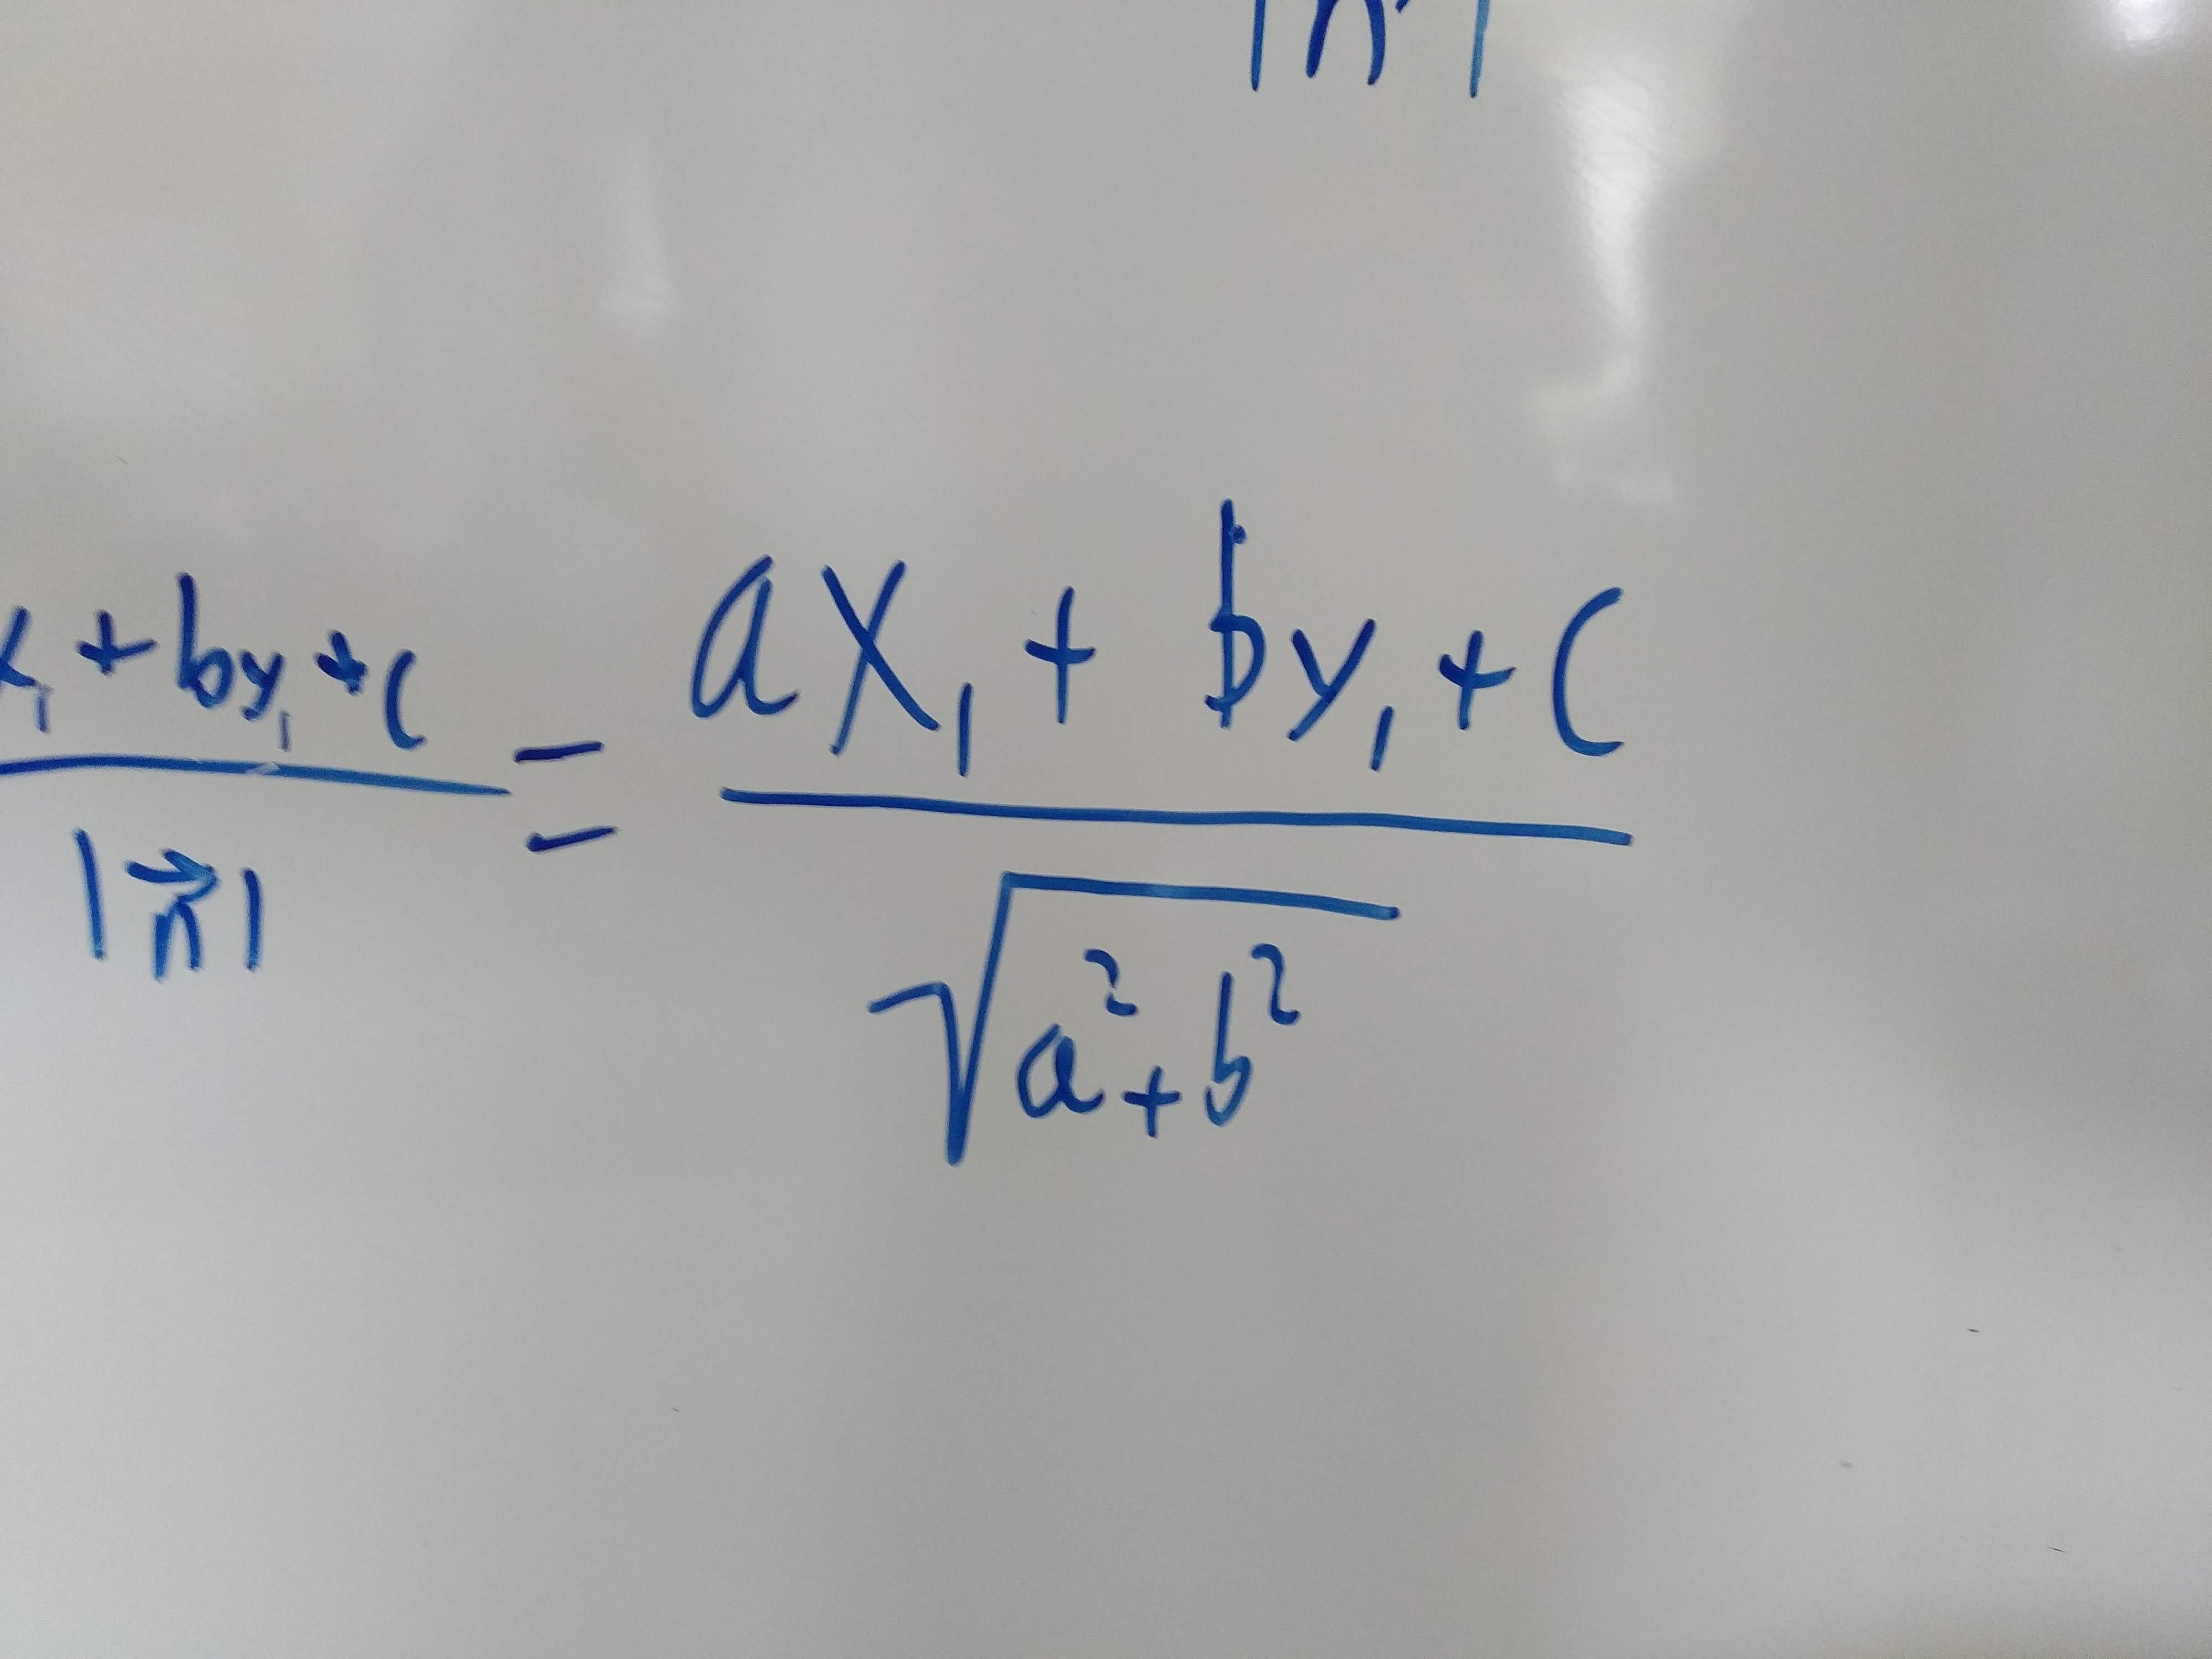 |n|
x₁ + by₁ + c / |n⃗| = ax₁ + by₁ + c / √(a² + b²)